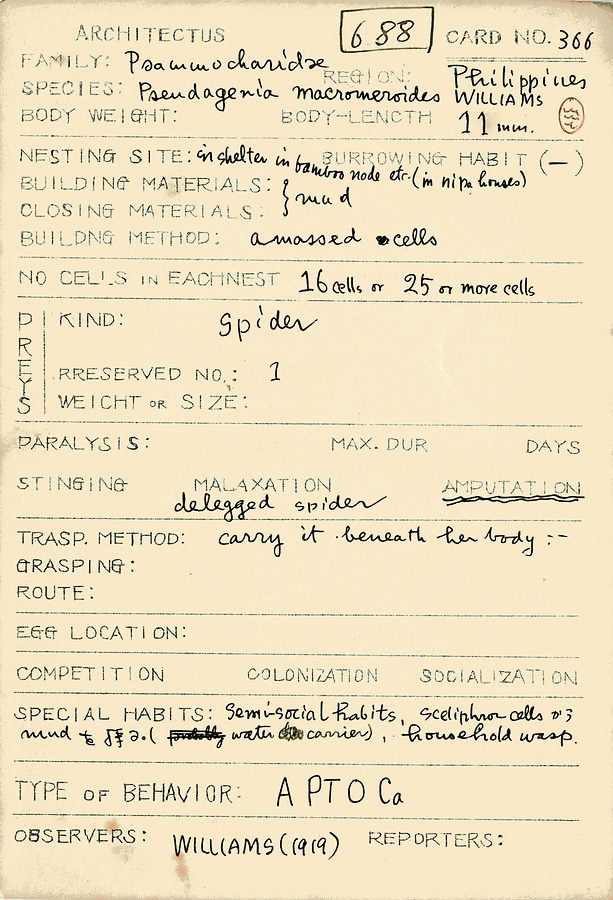 ARCHITECTUS 688 CARD NO. 366
FAMILY: Psammocharidae REGION: Philippines
SPECIES: Pseudagenia macromeroides WILLIAMS
BODY WEIGHT: BODY-LENGTH 11 mm.
NESTING SITE: in shelter in bamboo node etc. (in nipa houses) BURROWING HABIT (—)
BUILDING MATERIALS: } mud
CLOSING MATERIALS:
BUILDNG METHOD: amassed cells
NO CELLS IN EACHNEST 16 cells or 25 or more cells
PREYS
KIND: Spider
RRESERVED NO.: 1
WEIGHT OR SIZE:
PARALYSIS: MAX. DUR DAYS
STINGING MALAXATION AMPUTATION
delegged spider
TRASP. METHOD: carry it beneath her body :-
GRASPING:
ROUTE:
EGG LOCATION:
COMPETITION COLONIZATION SOCIALIZATION
SPECIAL HABITS: Semi-social habits, sceliphron cells
mud water carriers), household wasp.
TYPE OF BEHAVIOR: A PTO Ca
OBSERVERS: WILLIAMS (1919) REPORTERS: